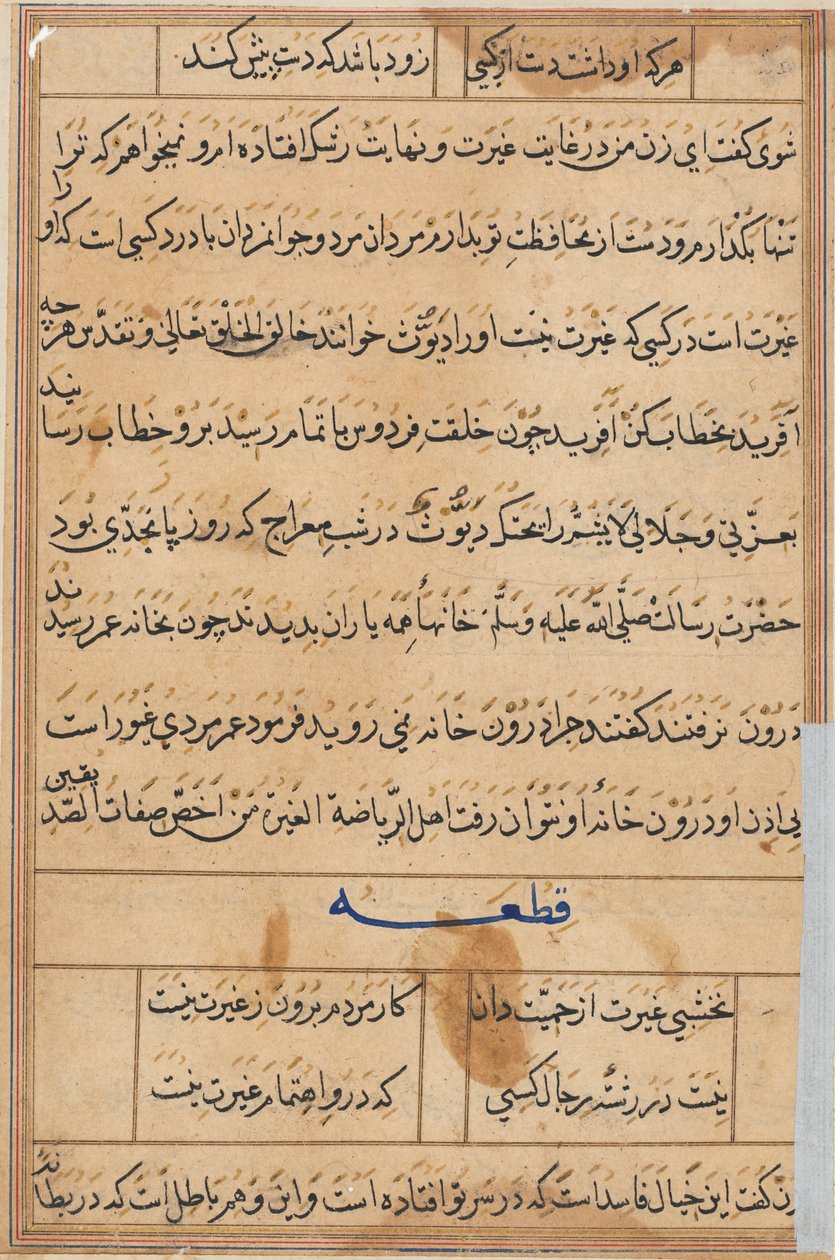 هر که او داشت دست از کسی زود باشد که دست پیش کند
شوی گفت ای زن من در غایت غیرت و نهایت رشک افتاده ام و نمیخواهم که ترا
تنها بگذارم و دست از محافظت تو بدارم مردان مرد و جوانمردان با درد کسی است که او را
غیرت است در کسی که غیرت نیست او را دیّوث خوانند خالق الخلق تعالی و تقدس هر چه
آفرید بخطاب کن آفرید چون خلقت فردوس باتمام رسید برو خطاب رسانید
بعزتی و جلالی لا یشم رایحتک دیّوث در شب معراج که روز پانجدی بود
حضرت رسالت صلی الله علیه و سلم خانهاٴ همه یاران بدیدند چون بخانه عمر رسیدند
درون نرفتند گفتند چرا درون خانه نمی روید فرمود عمر مردی غیور است
بی اذن او درون خانهٴ او نتوان رفت اهل الریاضة الغیرة من اخص صفات الصدیقین
قطعه
نخشبی غیرت از حمیّت دان کار مردم برون ز غیرت نیست
نیست در رشتهٴ رجال کسی که درو اهتمام غیرت نیست
زن گفت این خیال فاسد است که در سر تو افتاده است و این وهم باطل است که در بطانه